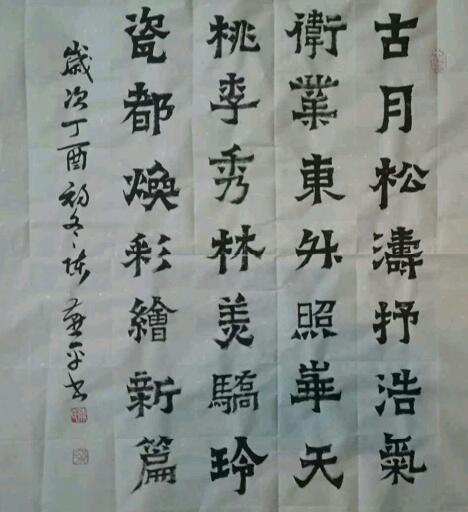 古月松濤抒浩氣
衛業東升照華天
桃李秀林美驕玲
瓷都煥彩繪新篇
歲次丁酉初冬陳燕平書